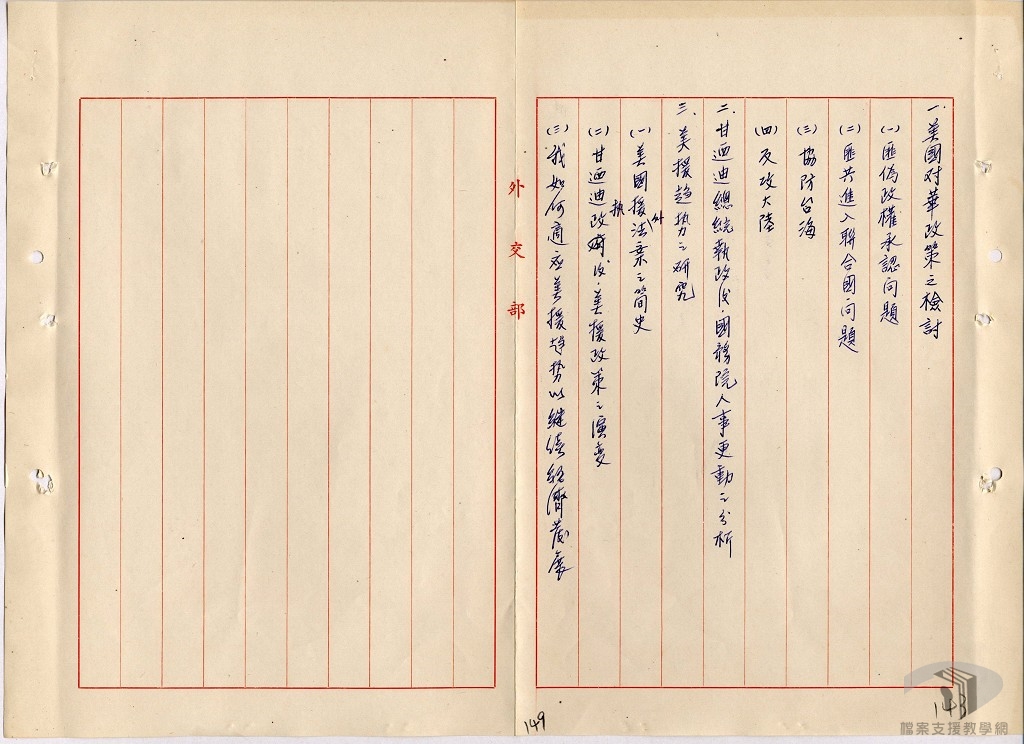 一、美國对華政策之檢討
(一)匪偽政權承認问題
(二)匪共進入聯合國问題
(三)協防台海
(四)反攻大陸
二、甘迺迪總統執政後,國務院人事更動之分析
三、美援趨势之研究
(一)美國援外法案之簡史
(二)甘迺迪执政後,美援政策之演变
(三)我如何適应美援趋势以继续經濟發展
外交部
149
148
檔案支援教學網